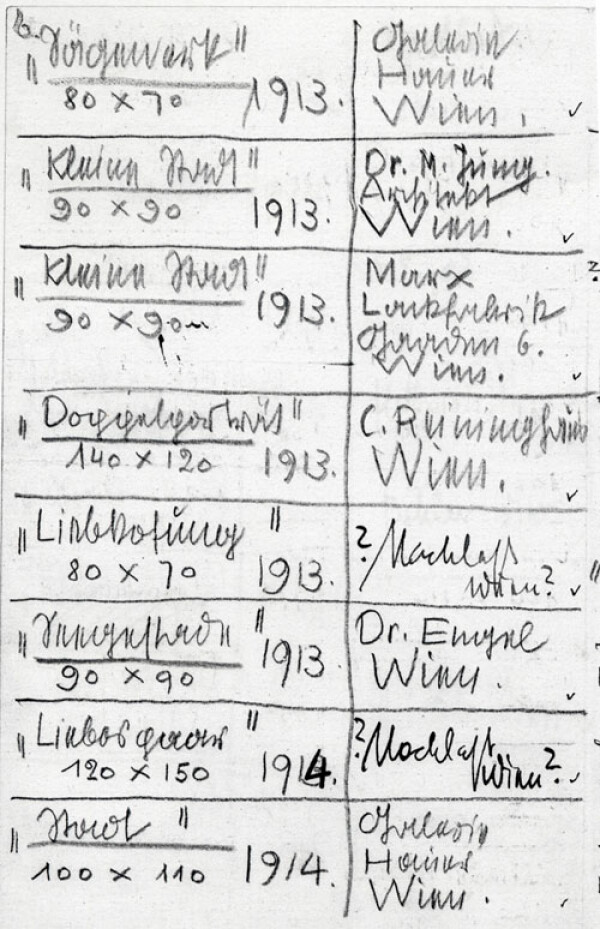 „Sägewerk"
80 x 70 1913.
Galerie
Hauer
Wien.
„Kleine Stadt"
90 x 90 1913.
Dr. M. Jung.
Architekt
Wien.
„Kleine Stadt"
90 x 90 1913.
Marx
Lackfabrik
Gaaden 6.
Wien.
?
„Doppelporträt"
140 x 120 1913.
C. Reininghaus
Wien.
„Liebkosung"
80 x 70 1913.
? Nachlaß
Wien?
90 x 90 1913
Dr. Engel
Wien.
„Liebespaar"
120 x 150 1914.
? Nachlaß
Wien?
„Stadt"
100 x 110 1914.
Galerie
Hauer
Wien.